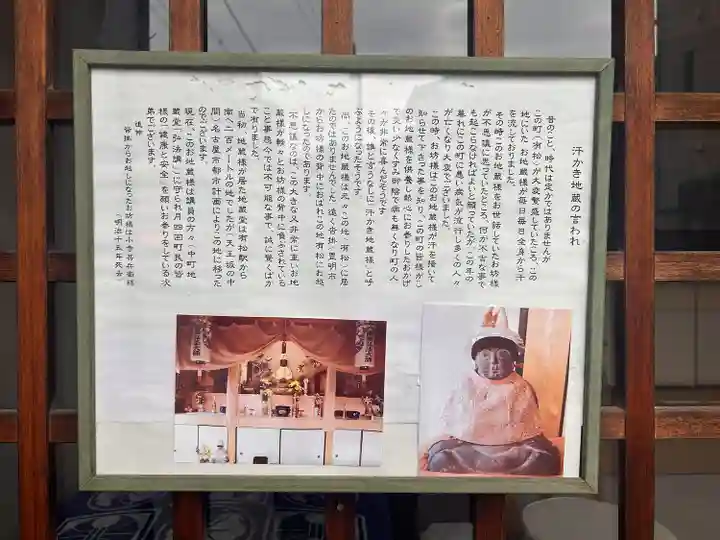 汗かき地蔵の言われ
昔のこと、時代は定かではありませんが
この町(有松)が大変繁盛していたころ、この
地にいた お地蔵様が毎日毎日全身から汗
を流しておりました。
その時このお地蔵様をお世話していたお坊様
が不思議に思っていたところ、何か不吉な事で
も起こらなければよいと願っていたが、この年の
暮れにこの町に悪い病気が流行し多くの人々
が亡くなり大変でございました。
この時、お坊様はこのお地蔵様が汗を掻いて
知らせて下さった事を知り、この町の皆様がこ
のお地蔵様を供養し熱心にお参りしたおかげ
で災い少なくすみ御陰で病も無くなり町の人
々が非常に喜んだそうです
その後、誰と言うなしに「汗かき地蔵様」と呼
ぶようになったそうです。
尚、このお地蔵様は元々この地(有松)に居
たのではありませんでした 遠く沓掛(豊明市)
からお坊様の背中におばれこの地有松にお越
しになったのであります。
不思議なのは、この大きな人非常に重いお地
蔵様が軽々とお坊様の背中に負かされている
こと事態今では不可能な事で、誠に驚くばか
りで有りました。
当初、地蔵様が居た地蔵堂は有松駅から
南へ二百メートルの地でしたが(天王坂の中
間)名古屋市都市計画によりこの地に移った
のでございます。
現在、このお地蔵様は講員の方々(中町地
蔵堂「弘法講」)に守られ月四回町民の皆
様の「健康と安全」を願いお参りをしている次
第でございます。
追伸
沓掛からお越しになったお坊様は小寺甚兵衛様
(明治十五年死去)